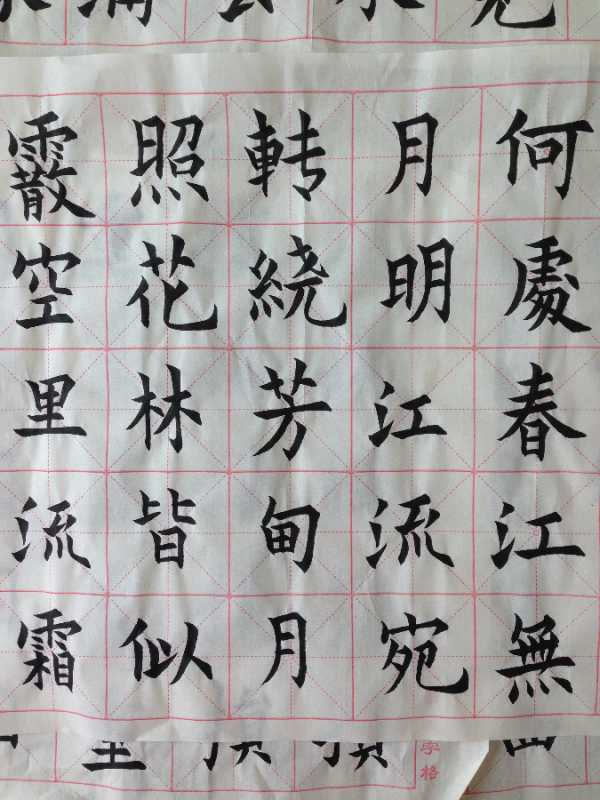 何處春江無
月明江流宛
轉繞芳甸月
照花林皆似
霰空里流霜